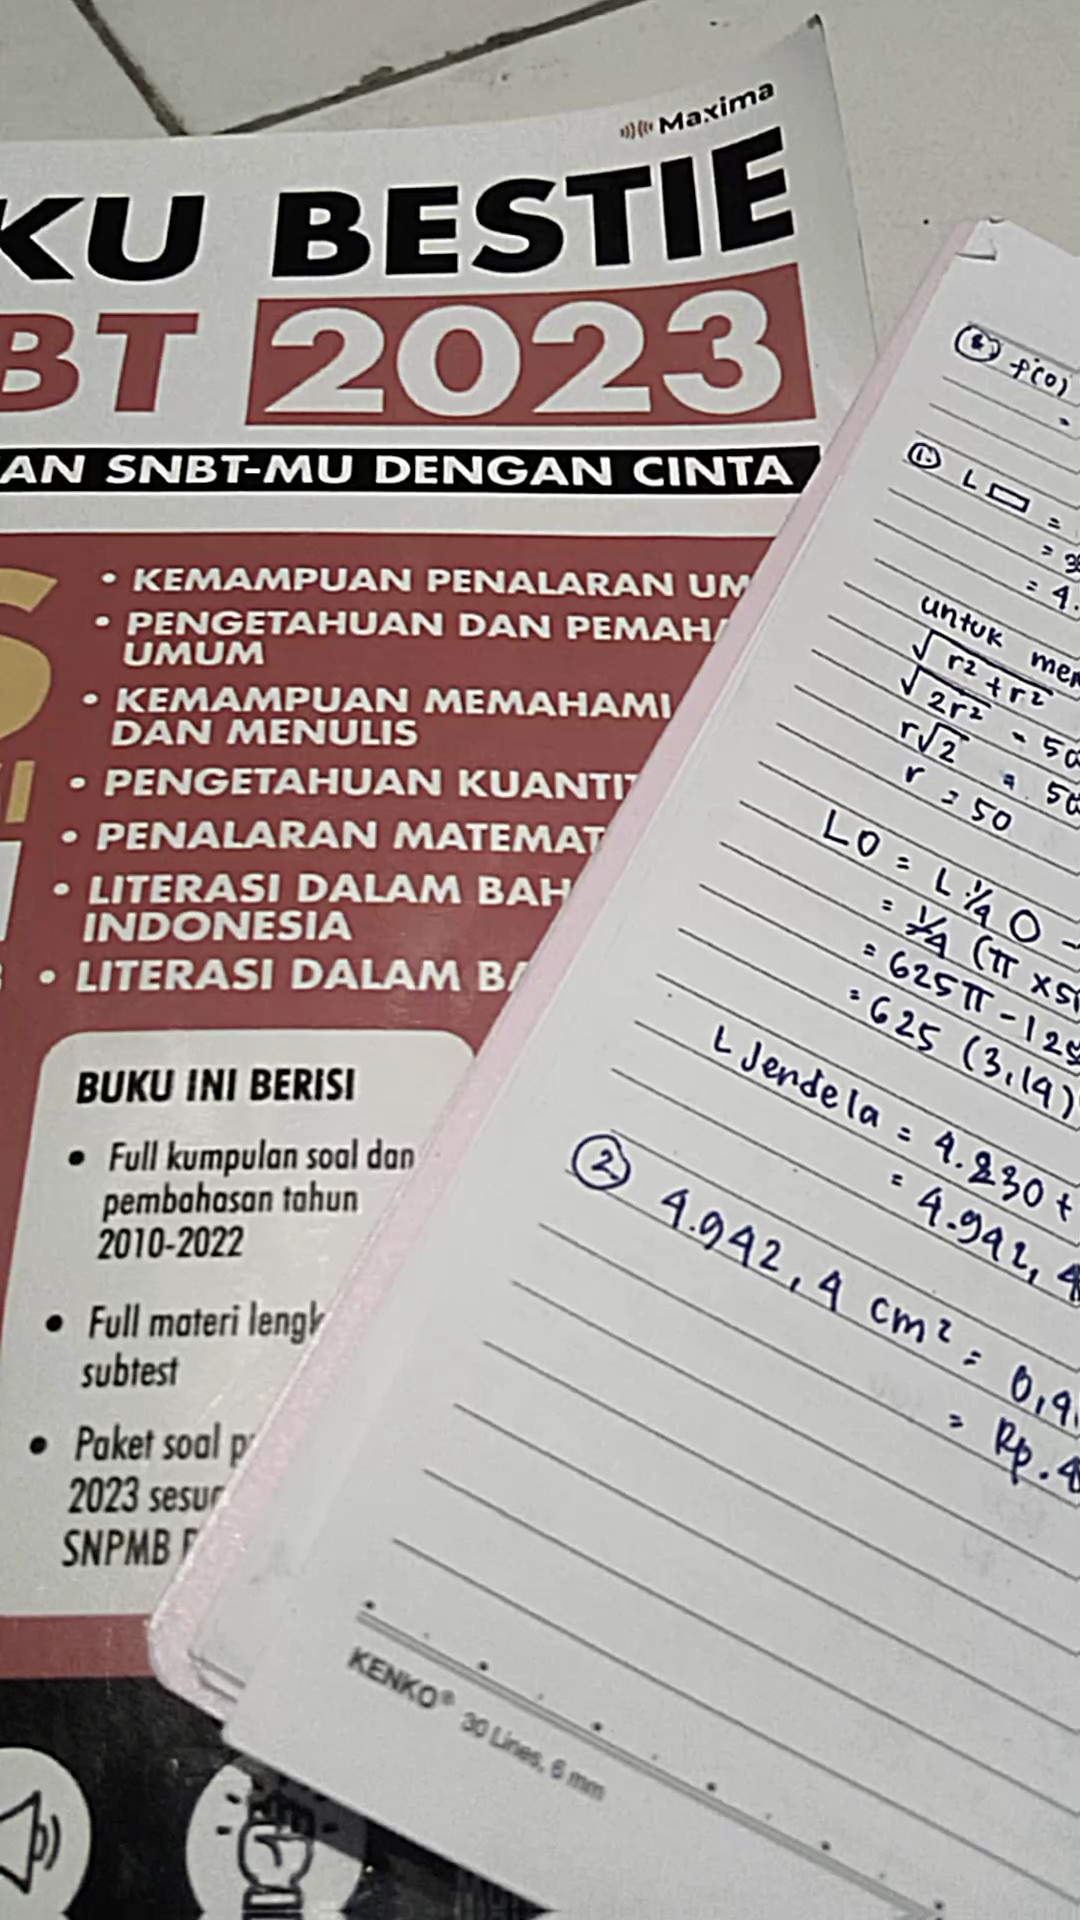 Maxima
KU BESTIE
BT 2023
AN SNBT-MU DENGAN CINTA
S
• KEMAMPUAN PENALARAN UM
• PENGETAHUAN DAN PEMAHA
UMUM
• KEMAMPUAN MEMAHAMI
DAN MENULIS
• PENGETAHUAN KUANTIT
• PENALARAN MATEMAT
• LITERASI DALAM BAH
INDONESIA
• LITERASI DALAM BA
BUKU INI BERISI
• Full kumpulan soal dan
pembahasan tahun
2010-2022
• Full materi lengk
subtest
• Paket soal p
2023 sesua
SNPMB
f(0)
=
L ▭ =
= 3
= 4.
untuk men
√r² + r²
√2r² = 50
r√2 = 50
r = 50
LO = L 1/4 O -
= 1/4 (π x 5
= 625π - 125
= 625 (3,14)
L Jendela = 4.830 +
= 4.942,4
② 4.942,4 cm² = 0,4
= Rp. 4
KENKO® 30 Lines, 6 mm